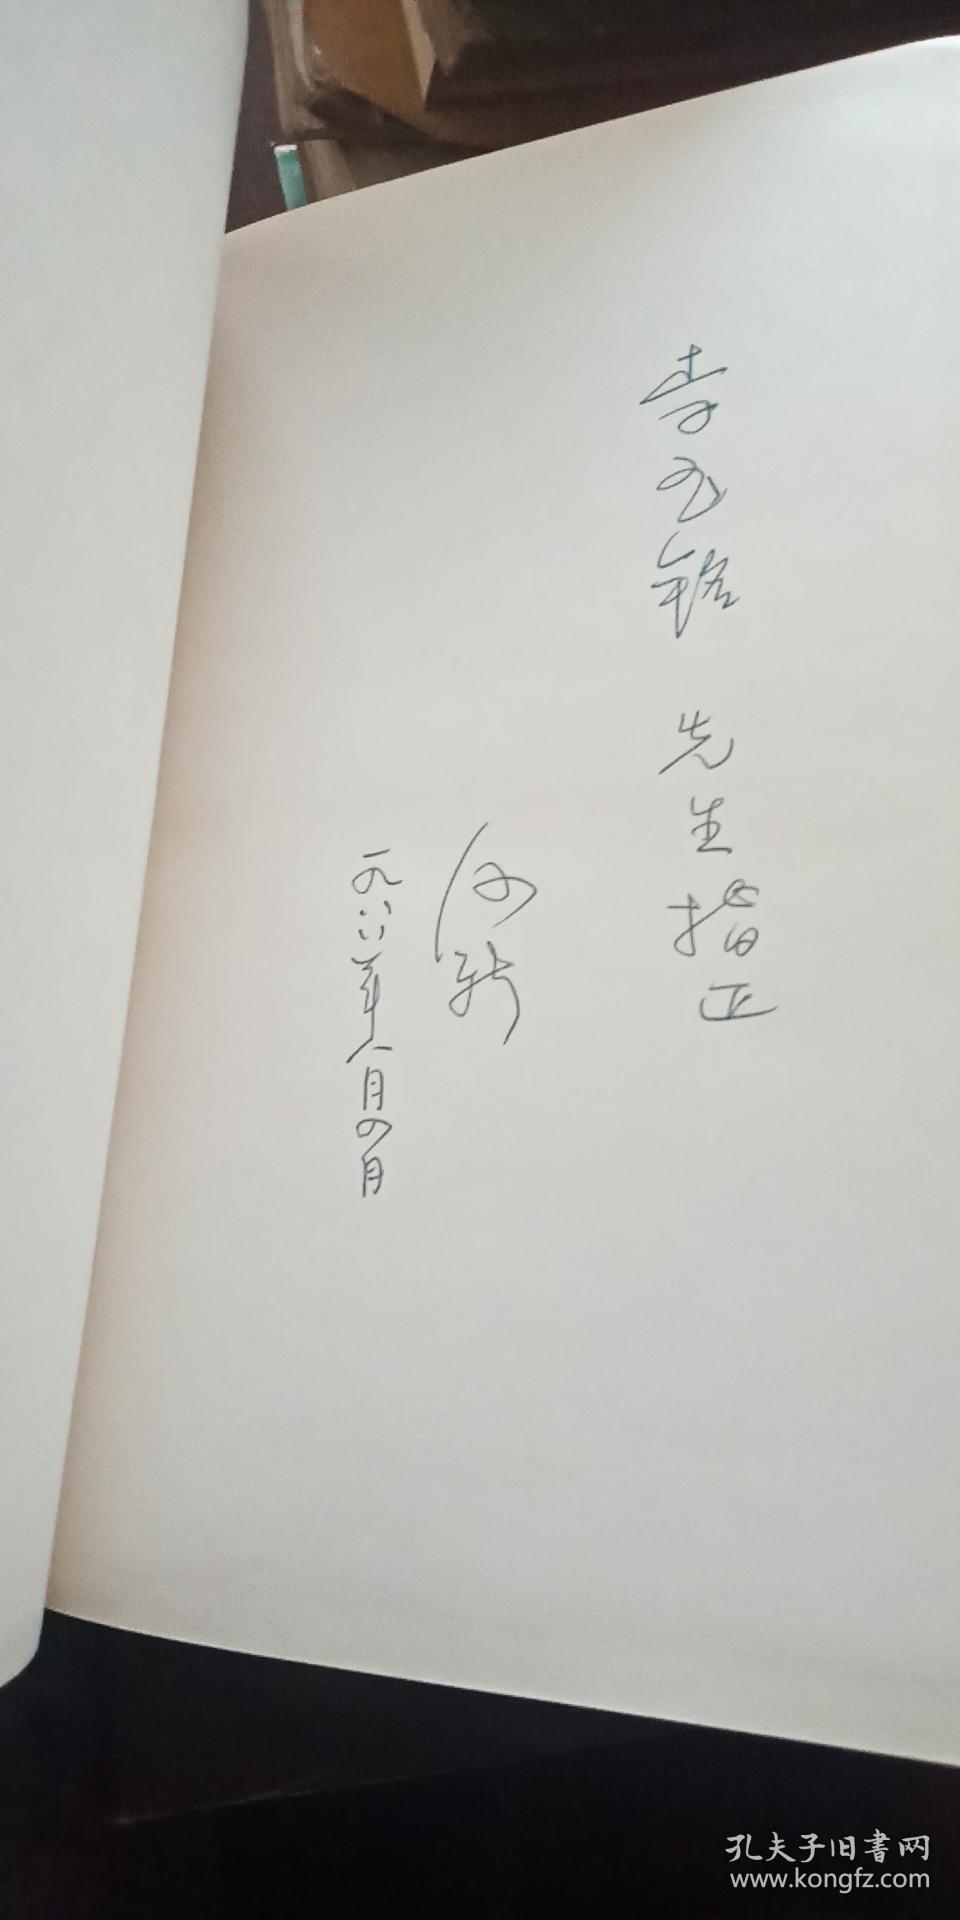 李 先生指正
何新
一九八八年八月四日
孔夫子旧书网
www.kongfz.com